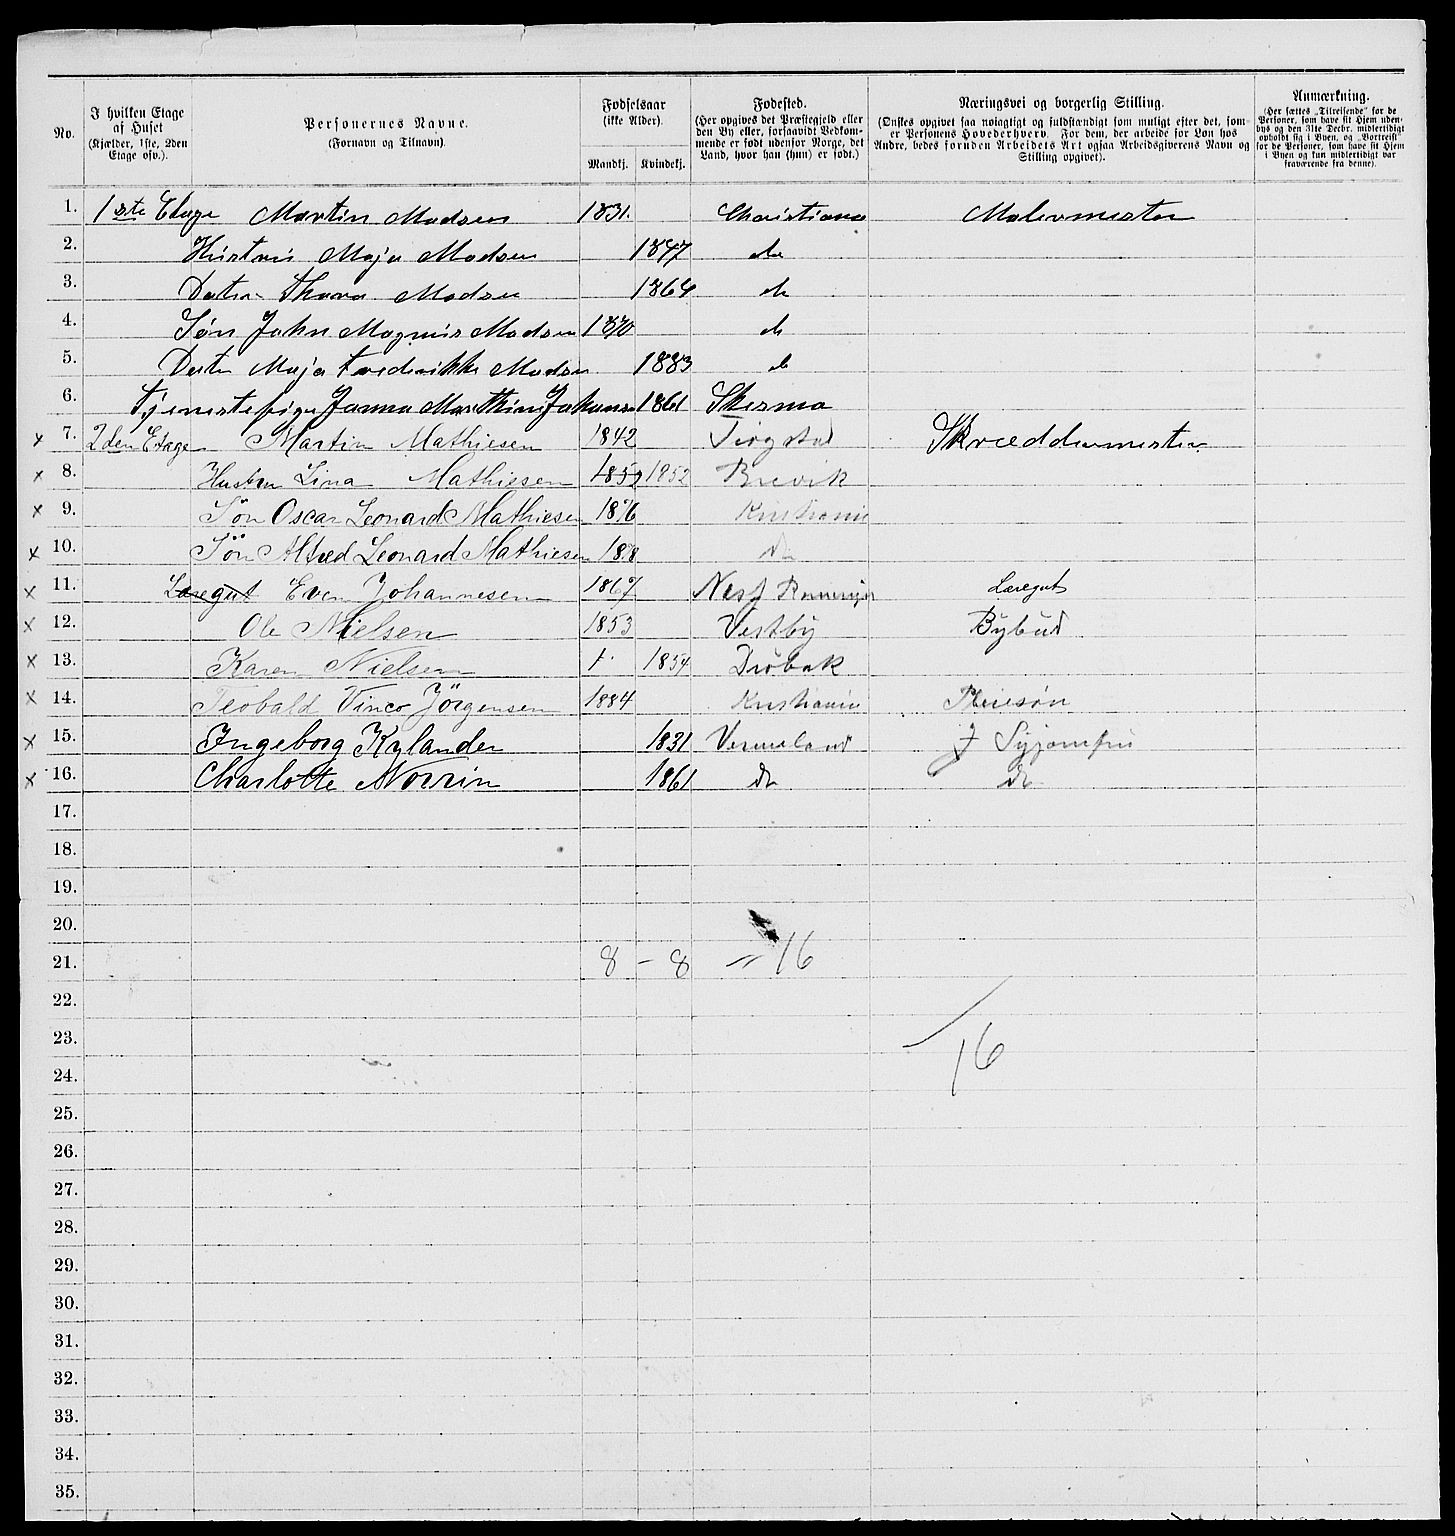 No. I hvilken Etage af Huset (Kjælder, 1ste, 2den Etage osv.). Personernes Navne. (Fornavn og Tilnavn). Fødselsaar (ikke Alder). Mandkj. Kvindekj. Fødested. (Her opgives det Præstegjeld eller den By eller, forsaavidt Vedkommende er født udenfor Norge, det Land, hvor han (hun) er født.) Næringsvei og borgerlig Stilling. (Ønskes opgivet saa nøiagtigt og fuldstændigt som muligt efter det, som er Personens Hovederhverv. For dem, der arbeide for Løn hos Andre, bedes foruden Arbeidets Art ogsaa Arbeidsgiverens Navn og Stilling opgivet). Anmærkning. (Her sættes „Tilreisende" for de Personer, som have sit Hjem udenbys og den 31te Decbr. midlertidigt opholdt sig i Byen, og „Bortreist" for de Personer, som have sit Hjem i Byen og kun midlertidigt var fraværende fra denne).
1. 1ste Etage Martin Madsen 1831. Christiania Malermester
2. Hustru Maja Madsen 1847 do
3. Datter Thora Madsen 1864 do
4. Søn John Magnus Madsen 1870 do
5. Datter Maja Fredrikke Madsen 1883 do
6. Tjenestepige Janna Marthine Johans 1861
x 7. 2den Etage Martin Mathiesen 1842 Skræddermester
x 8. Hustru Lina Mathiesen 1852 1852 Brevik
x 9. Søn Oscar Leonard Mathiesen 1876 Kristiania
x 10. Søn Alfred Leonard Mathiesen 1878 do
x 11. Læregut Even Johannesen 1867 Læregut
x 12. Ole Nielsen 1853 Vestby Bybud
x 13. Karen Nielsen 1. 1854 Drøbak
x 14. Teobald Vinco Jörgensen 1884 Kristiania Pleiesøn
x 15. Ingeborg Kylander 1831 Vermeland Syjomfru
x 16. Charlotte Norrin 1861 do do
17.
18.
19.
20.
21. 8 - 8 = 16
22.
23.
16
24.
25.
26.
27.
28.
29.
30.
31.
32.
33.
34.
35.